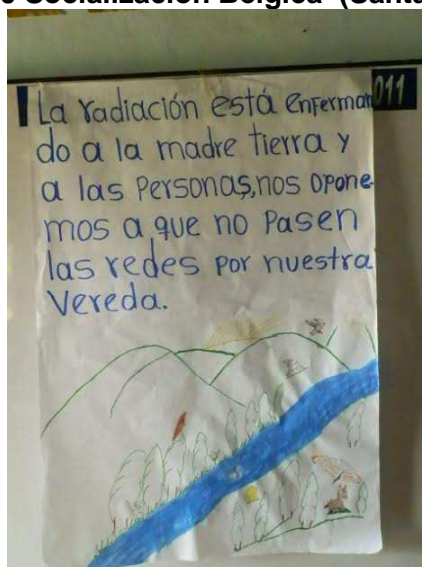 Socialización Bélgica (Santa
011
La radiación está enferman
do a la madre tierra y
a las personas, nos opone
mos a que no pasen
las redes por nuestra
vereda.